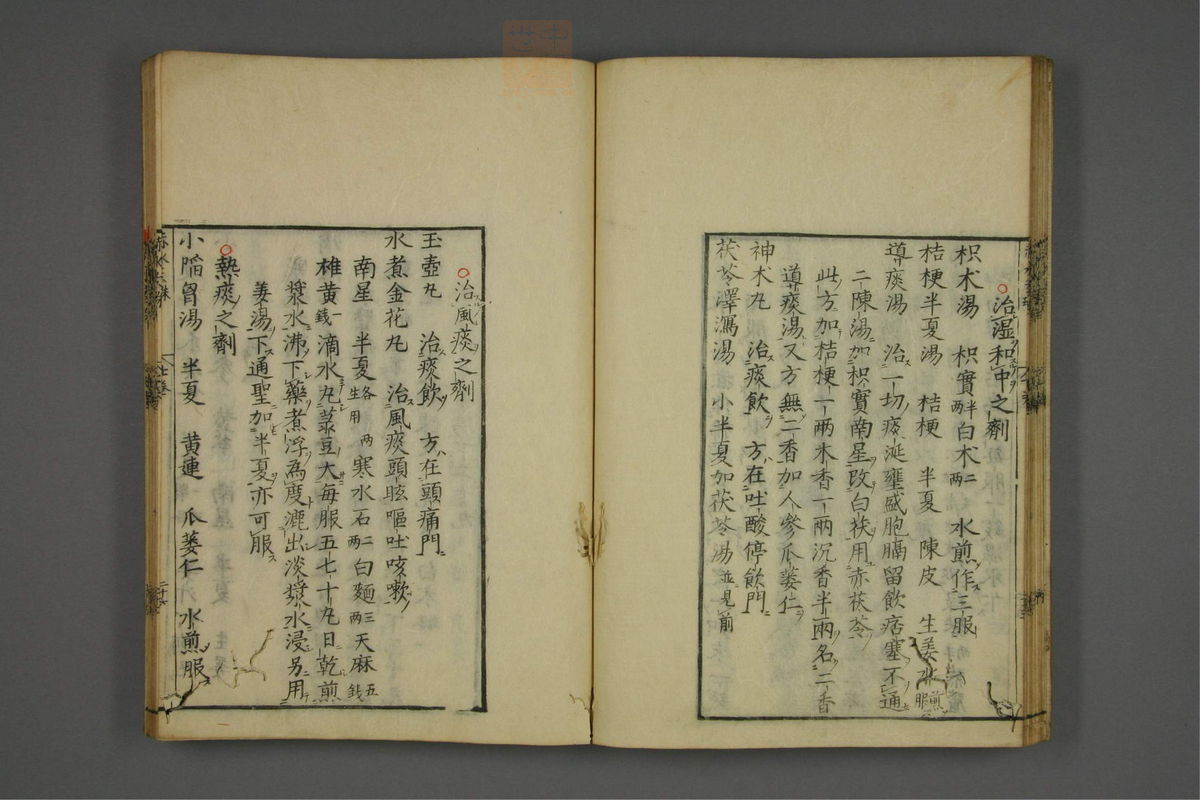 ○治湿和中之劑
枳朮湯 枳實半兩白朮二兩 水煎作三服
桔梗半夏湯 桔梗 半夏 陳皮 生姜 煎服
導痰湯 治一切痰涎壅盛胞膈留飲痞塞不通
二陳湯加枳實南星改白茯用赤茯苓
此方加桔梗一兩木香一兩沉香半兩名二香
導痰湯又方無二香加人參瓜蔞仁
神朮丸 治痰飲 方在吐酸停飲門
茯苓澤瀉湯 小半夏加茯苓湯並見前
○治風痰之劑
玉壺丸 治痰飲 方在頭痛門
水煮金花丸 治風痰頭眩嘔吐咳嗽
南星 半夏各一兩生用 寒水石二兩 白麵三兩 天麻五錢
雄黃一錢 滴水丸菉豆大每服五七十丸日乾煎
漿水沸下藥煮浮為度漉出淡漿水浸另用
姜湯下通聖加半夏亦可服
○熱痰之劑
小陷胷湯 半夏 黃連 瓜蔞仁 水煎服